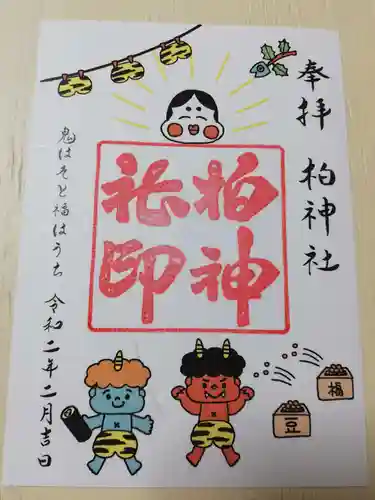 奉拝 柏神社
柏神
社印
鬼はそと福はうち
令和二年二月吉日
福
豆